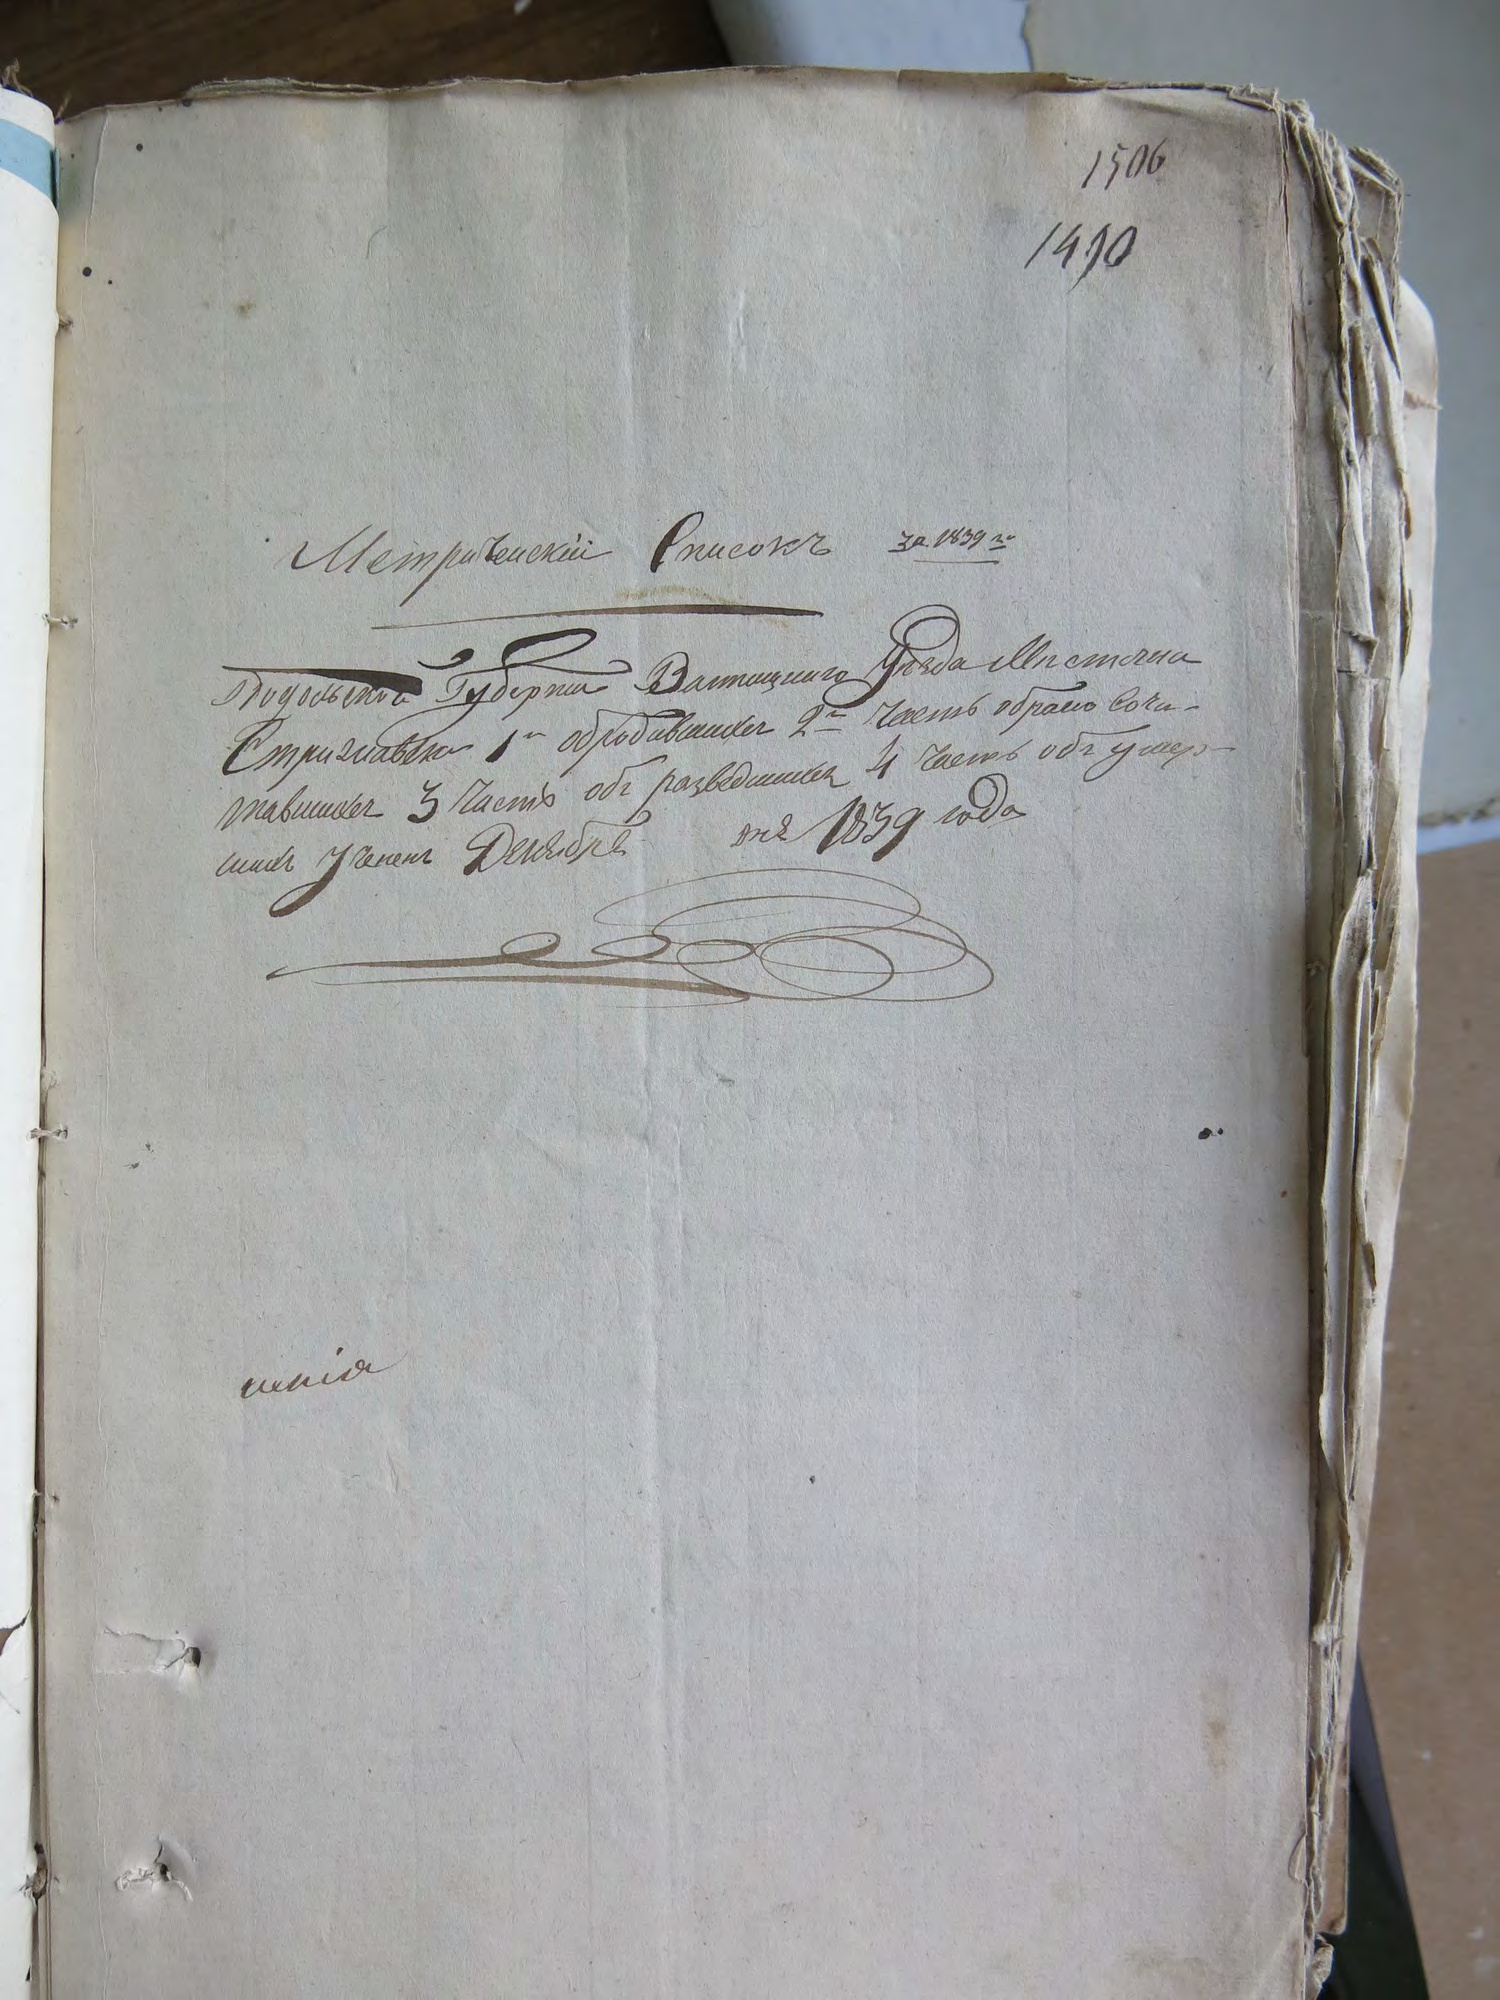 1506
1410
Метрическій Списокъ за 1839 го
Подольской Губерніи Уѣзда Мистечка
Стрижавки 1я обродившихся 2я Часть обрако Соче-
тавшихся 3 Часть объ разведшихся 4 Часть объ умер-
шихъ Декабрѣ дня 1839 года
ченія